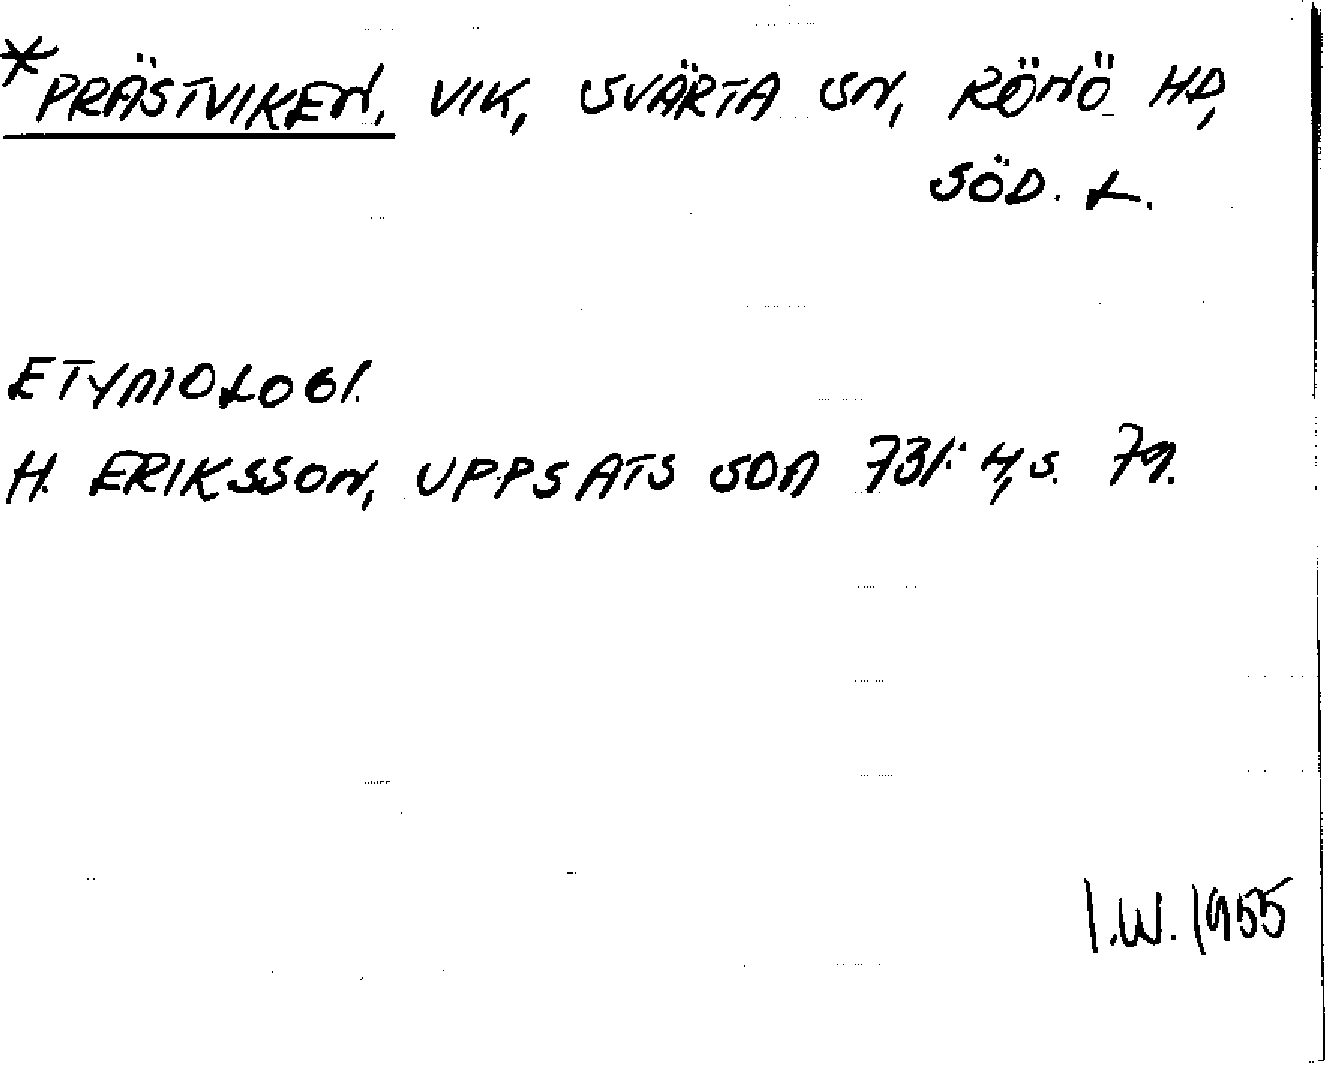 *PRÄSTVIKEN, VIK, SVÄRTA SN, RÖNÖ HD,
SÖD. L.
ETYMOLOGI.
H. ERIKSSON, UPPSATS SOA 731:4, s. 79.
I.W. 1955